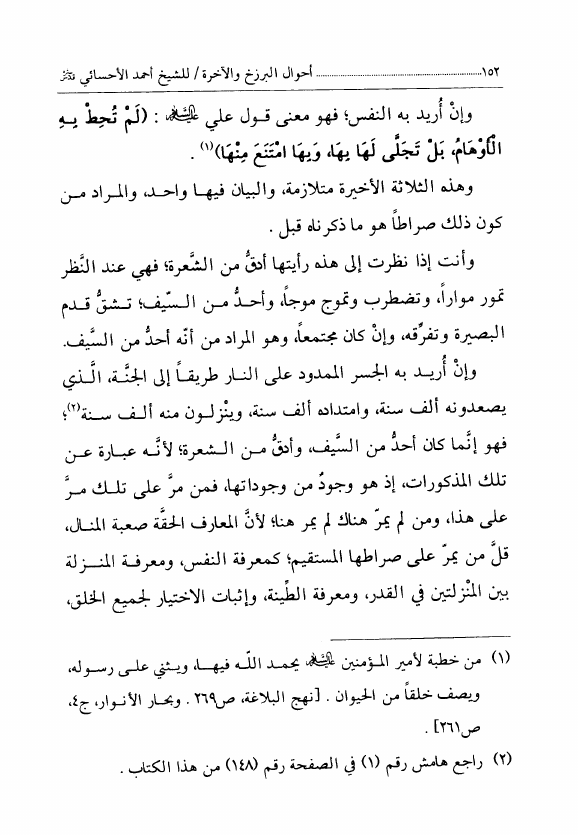 ١٥٢ ........ أحوال البرزخ والآخرة / للشيخ أحمد الأحسائي قدس سره
وإنْ أُريد به النفس؛ فهو معنى قول علي عليه السلام : (لَمْ تُحِطْ بِهِ
الْأَوْهَامُ، بَلْ تَجَلَّى لَهَا بِهَا، وَبِهَا امْتَنَعَ مِنْهَا)(١) .
وهذه الثلاثة الأخيرة متلازمة، والبيان فيهـا واحـد، والمـراد مـن
كون ذلك صراطاً هو ما ذكرناه قبل .
وأنت إذا نظرت إلى هذه رأيتها أدقُّ من الشَّعرة؛ فهي عند النَّظر
تمور مواراً، وتضطرب وتموج موجاً، وأحـدُّ مـن الـسّيف؛ تـشقُّ قـدم
البصيرة وتفرِّقه، وإنْ كان مجتمعاً، وهو المراد من أنّه أحدُّ من السَّيف.
وإنْ أُريـد به الجسر الممدود على النار طريقـاً إلى الجنَّـة، الَّـذي
يصعدونه ألف سنة، وامتداده ألف سنة، وينْزلـون منه ألـف سـنة(٢)؛
فهو إنَّما كان أحدُّ من السَّيف، وأدقُّ مـن الـشعرة؛ لأنَّـه عبـارة عـن
تلك المذكورات، إذ هو وجودٌ من وجوداتها، فمن مرَّ على تلـك مـرَّ
على هذا، ومن لم يمرّ هناك لم يمر هنا؛ لأنَّ المعارف الحقَّة صعبة المنـال،
قلَّ من يمرّ على صراطها المستقيم؛ كمعرفة النفس، ومعرفـة المنـزلة
بين المْنزلتين في القدر، ومعرفة الطِّينة، وإثبات الاختيار لجميع الخلق،
(١) من خطبة لأمير المـؤمنين عليه السلام يحمـد اللَّـه فيهـا، ويـثني علـى رسـوله،
ويصف خلقـاً من الحيوان . [نهج البلاغة، ص٢٦٩ . وبحـار الأنـوار، ج٤،
ص٢٦١] .
(٢) راجع هامش رقم (١) في الصفحة رقم (١٤٨) من هذا الكتاب .